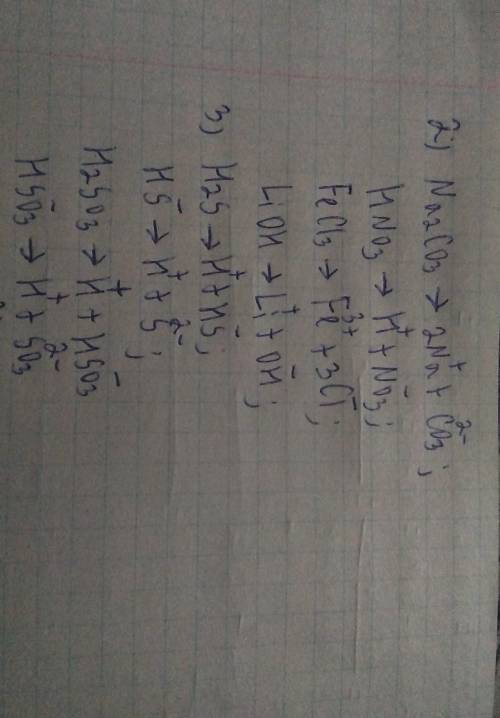 2) Na2CO3 → 2Na⁺ + CO3²⁻;
HNO3 → H⁺ + NO3⁻;
FeCl3 → Fe³⁺ + 3Cl⁻;
LiOH → Li⁺ + OH⁻;
3) H2S → H⁺ + HS⁻;
HS⁻ → H⁺ + S²⁻;
H2SO3 → H⁺ + HSO3⁻
HSO3⁻ → H⁺ + SO3²⁻